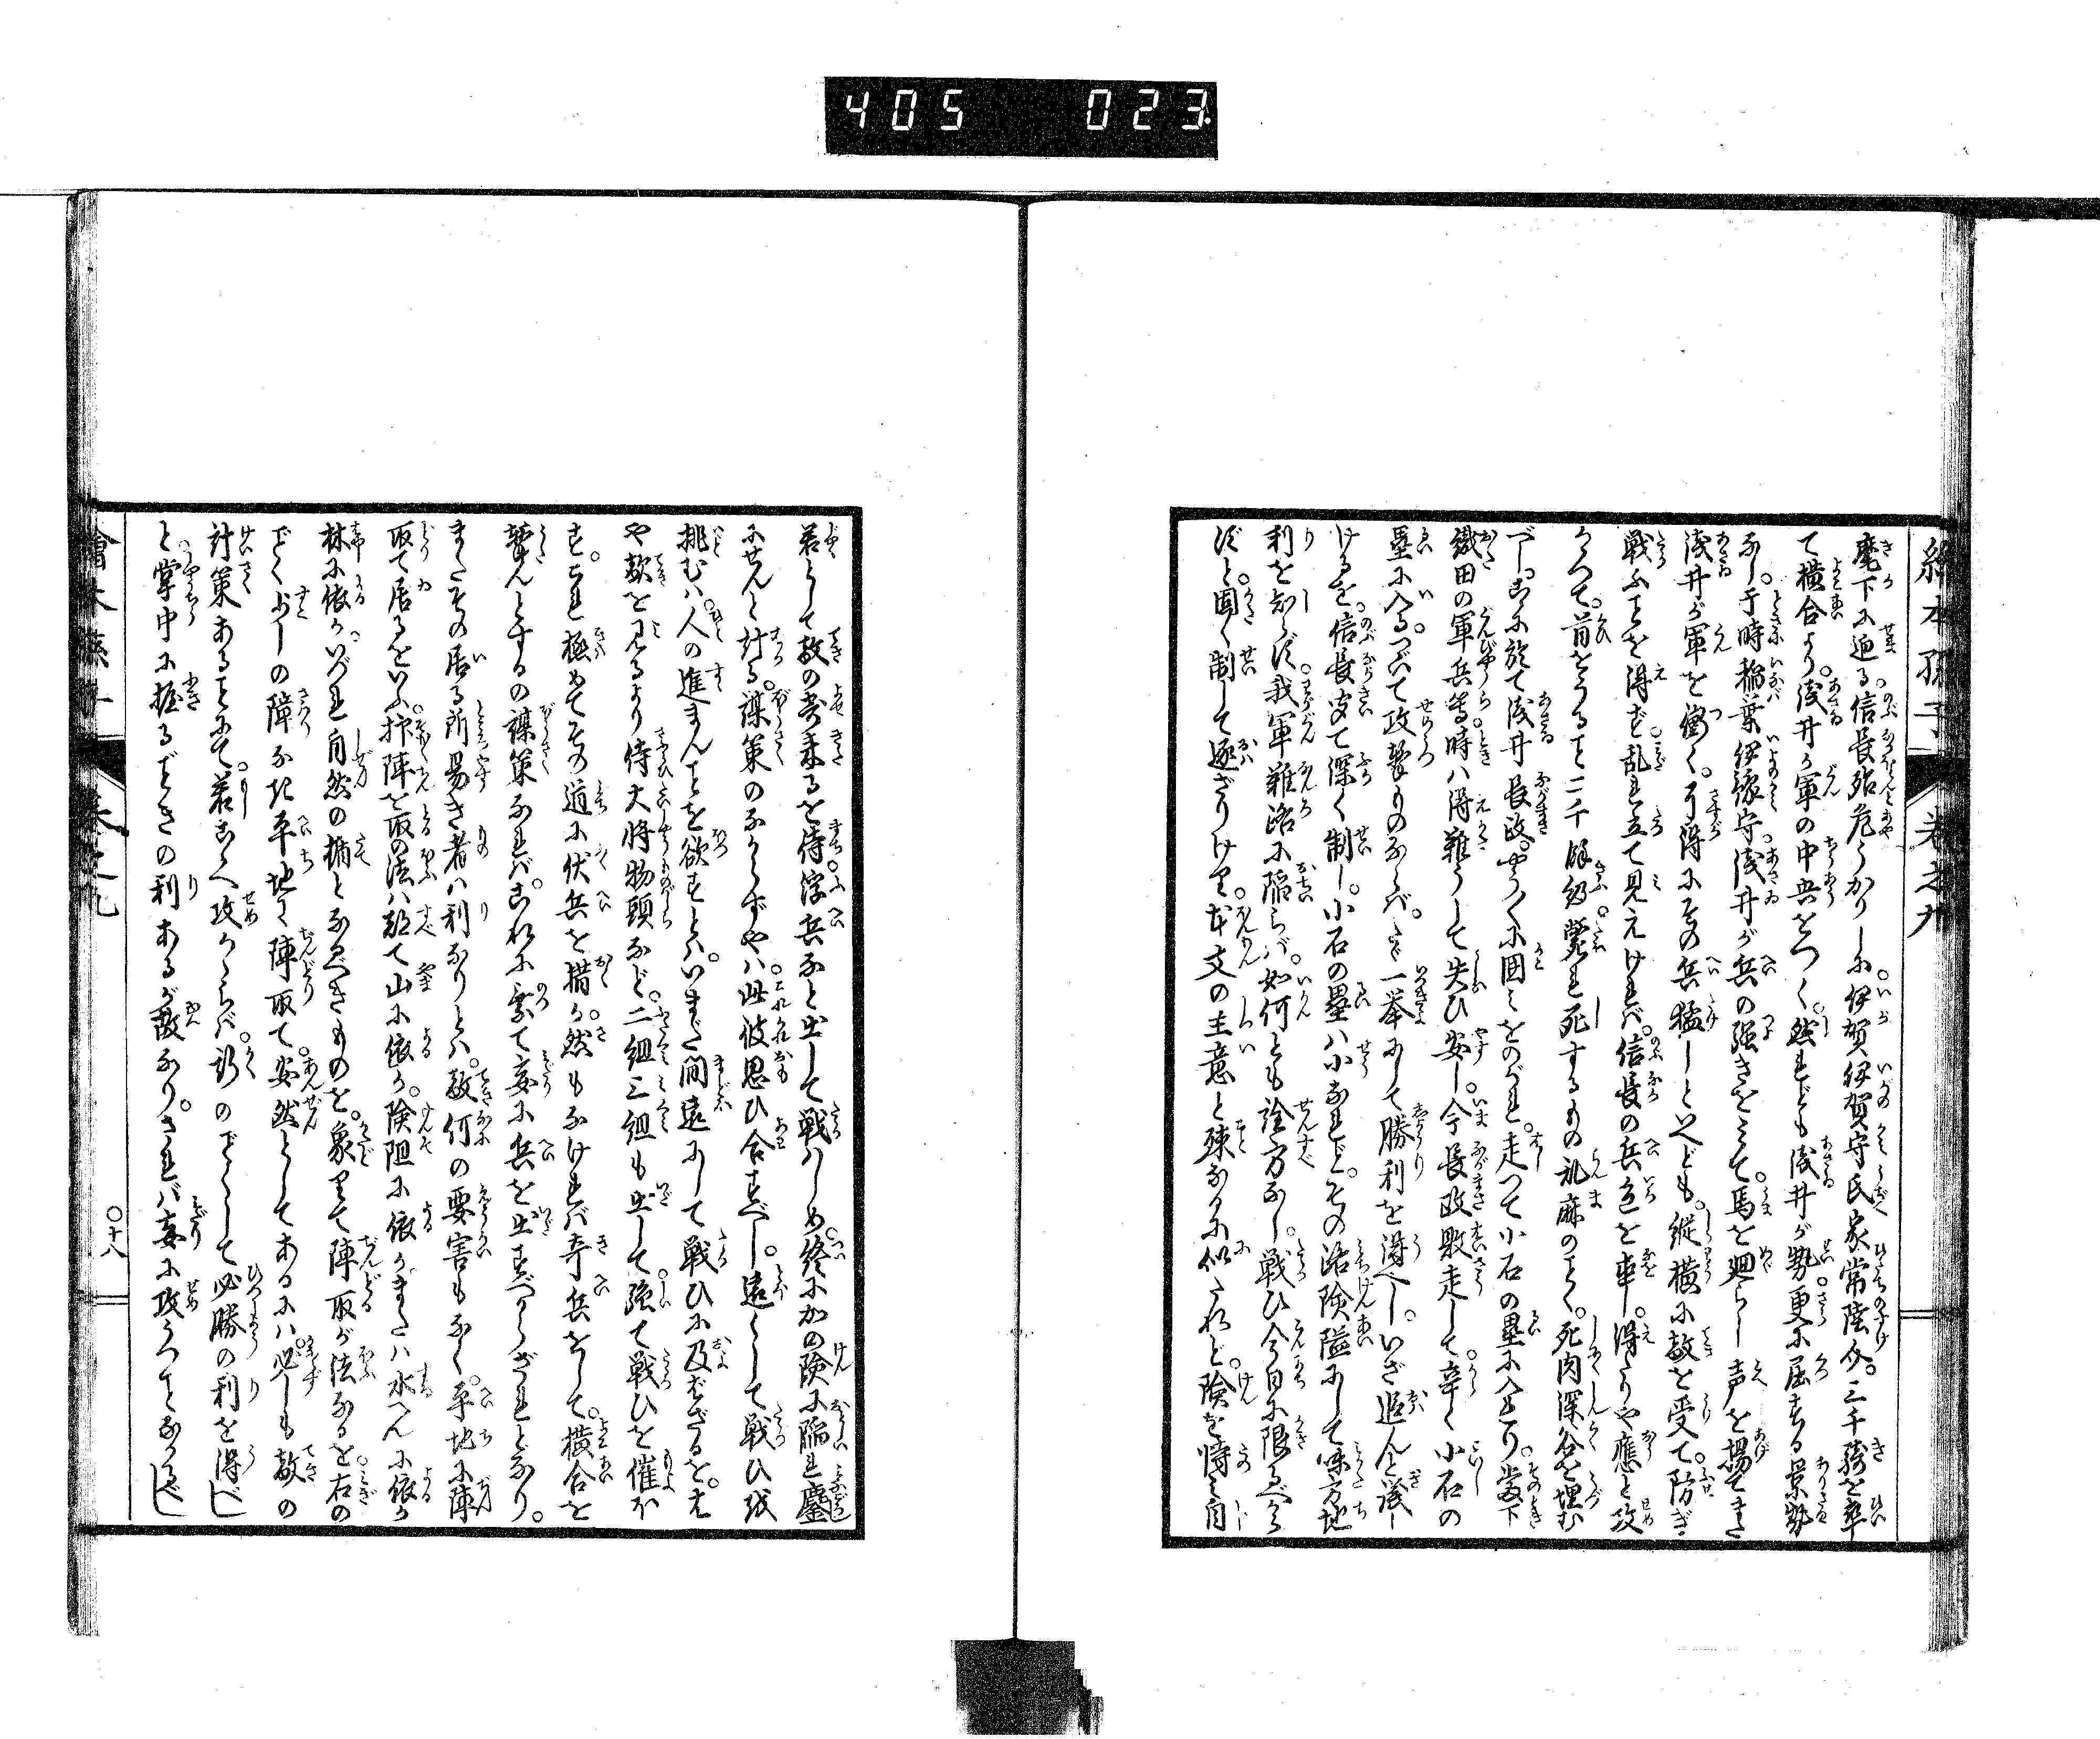 405 023
絵本孫子 巻之九
麾下に迫る。信長殆危うかりしに。伊賀伊賀守氏家常陸介。三千騎を率
て横合より。浅井が軍の中央をつく。然れども浅井が勢。更に屈する景勢
なし。于時稲葉伊豫守。浅井が兵の強きをみて。馬を廻らし声を揚てまた
浅井が軍を衝く。引得にその兵猛しといへども。縦横に敵を受て。防ぎ
戦ふことを得ず。乱れ立て見えければ。信長の兵色を直し。得たりや應と攻
かつて。首をうること二千餘級。斃れ死するもの乱麻のごとく。死肉深谷を埋む
べし。茲に於て浅井長政。やうやくに囲みをのがれ。走つて小石の塁に入たり。当下
織田の軍兵等。時ハ得難うして失ひ安し。今長政敗走して。辛く小石の
塁に入る。つゞいて攻撃ものならバ。たゞ一挙にして勝利を得べし。いざ追んと議し
けるを。信長支て深く制し。小石の塁ハ小なれど。その路険隘にして味方地
利を知らず。我軍難路に陥らバ。如何とも詮方なし。戦ひ今日に限るべから
ずと。固く制して逐ざりけり。本文の主意と殊なるに似たれど。険を恃み自
若として敵の寄来るを待。浮兵など出して戦ハしめ。終にかの険に陥れ鏖
にせんと計る。謀策のなからずやハ。此彼思ひ合すべし。遠くして戦ひ或
挑むハ。人の進まんことを欲すとハ。いまだ間遠にして戦ひに及ばざるを。はや
や敵を見るより侍大将物頭など。二組三組も出して。強て戦ひを催ほ
す。これ極めてその道に伏兵を措か。然もなければ奇兵をして。横合を
撃んとするの謀策なれバ。これに乗て妄に兵を出すべからざれとなり。
またその居る所易き者ハ利なりとハ。敵何の要害もなく。平地に陣
取て居るをいふ。抑陣を取の法ハ都て山に依か。険阻に依か。または水へんに依か
林に依か。いづれ自然の楯となるべきものを。象りて陣取が法なるを。右の
ごとく少しの障なき平地に陣取て。安然としてあるにハ。必しも敵の
計策あることにて。若こゝへ攻かゝらバ。斯のごとくして必勝の利を得べし
と。掌中に握るごときの利あるが故なり。されバ妄に攻うつことなかるべし
繪本孫子 巻之九 〇十八